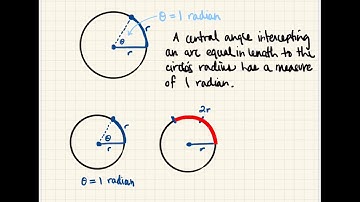 θ = 1 radian
r
θ
r
A central angle intercepting
an arc equal in length to the
circle's radius has a measure
of 1 radian.
2r
r
θ
r
r
θ = 1 radian